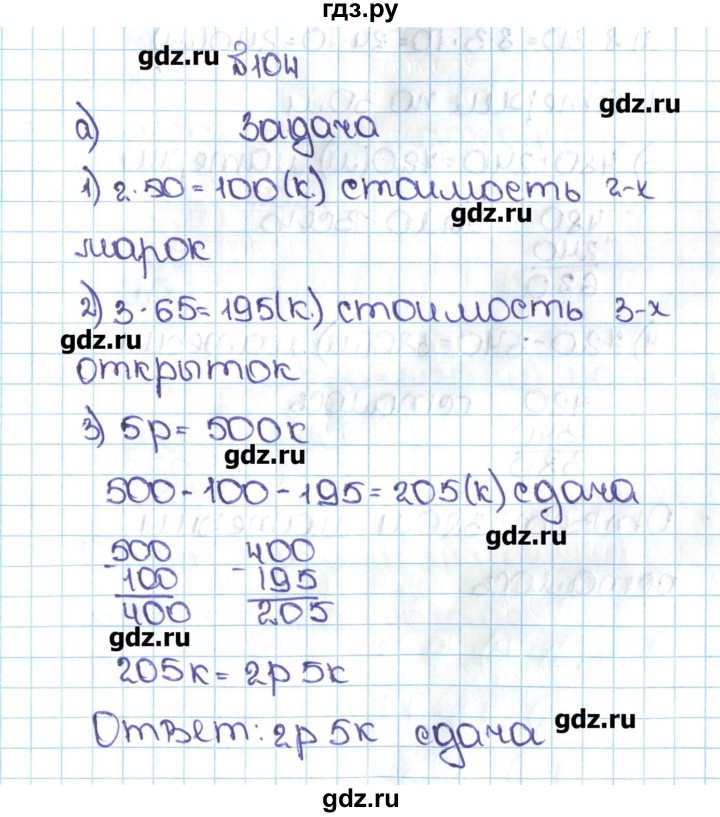 гдз.ру
gdz.ru
№104
gdz.ru
а) Задача
1) 2·50=100(к.) стоимость 2-х
gdz.ru
марок
2) 3·65=195(к.) стоимость 3-х
gdz.ru
открыток
3) 5р= 500к
gdz.ru
500-100-195=205(к) сдача
gdz.ru
500 400
- 100 - 195
400 205
gdz.ru
205к= 2р 5к
gdz.ru
Ответ: 2р 5к сдача
gdz.ru